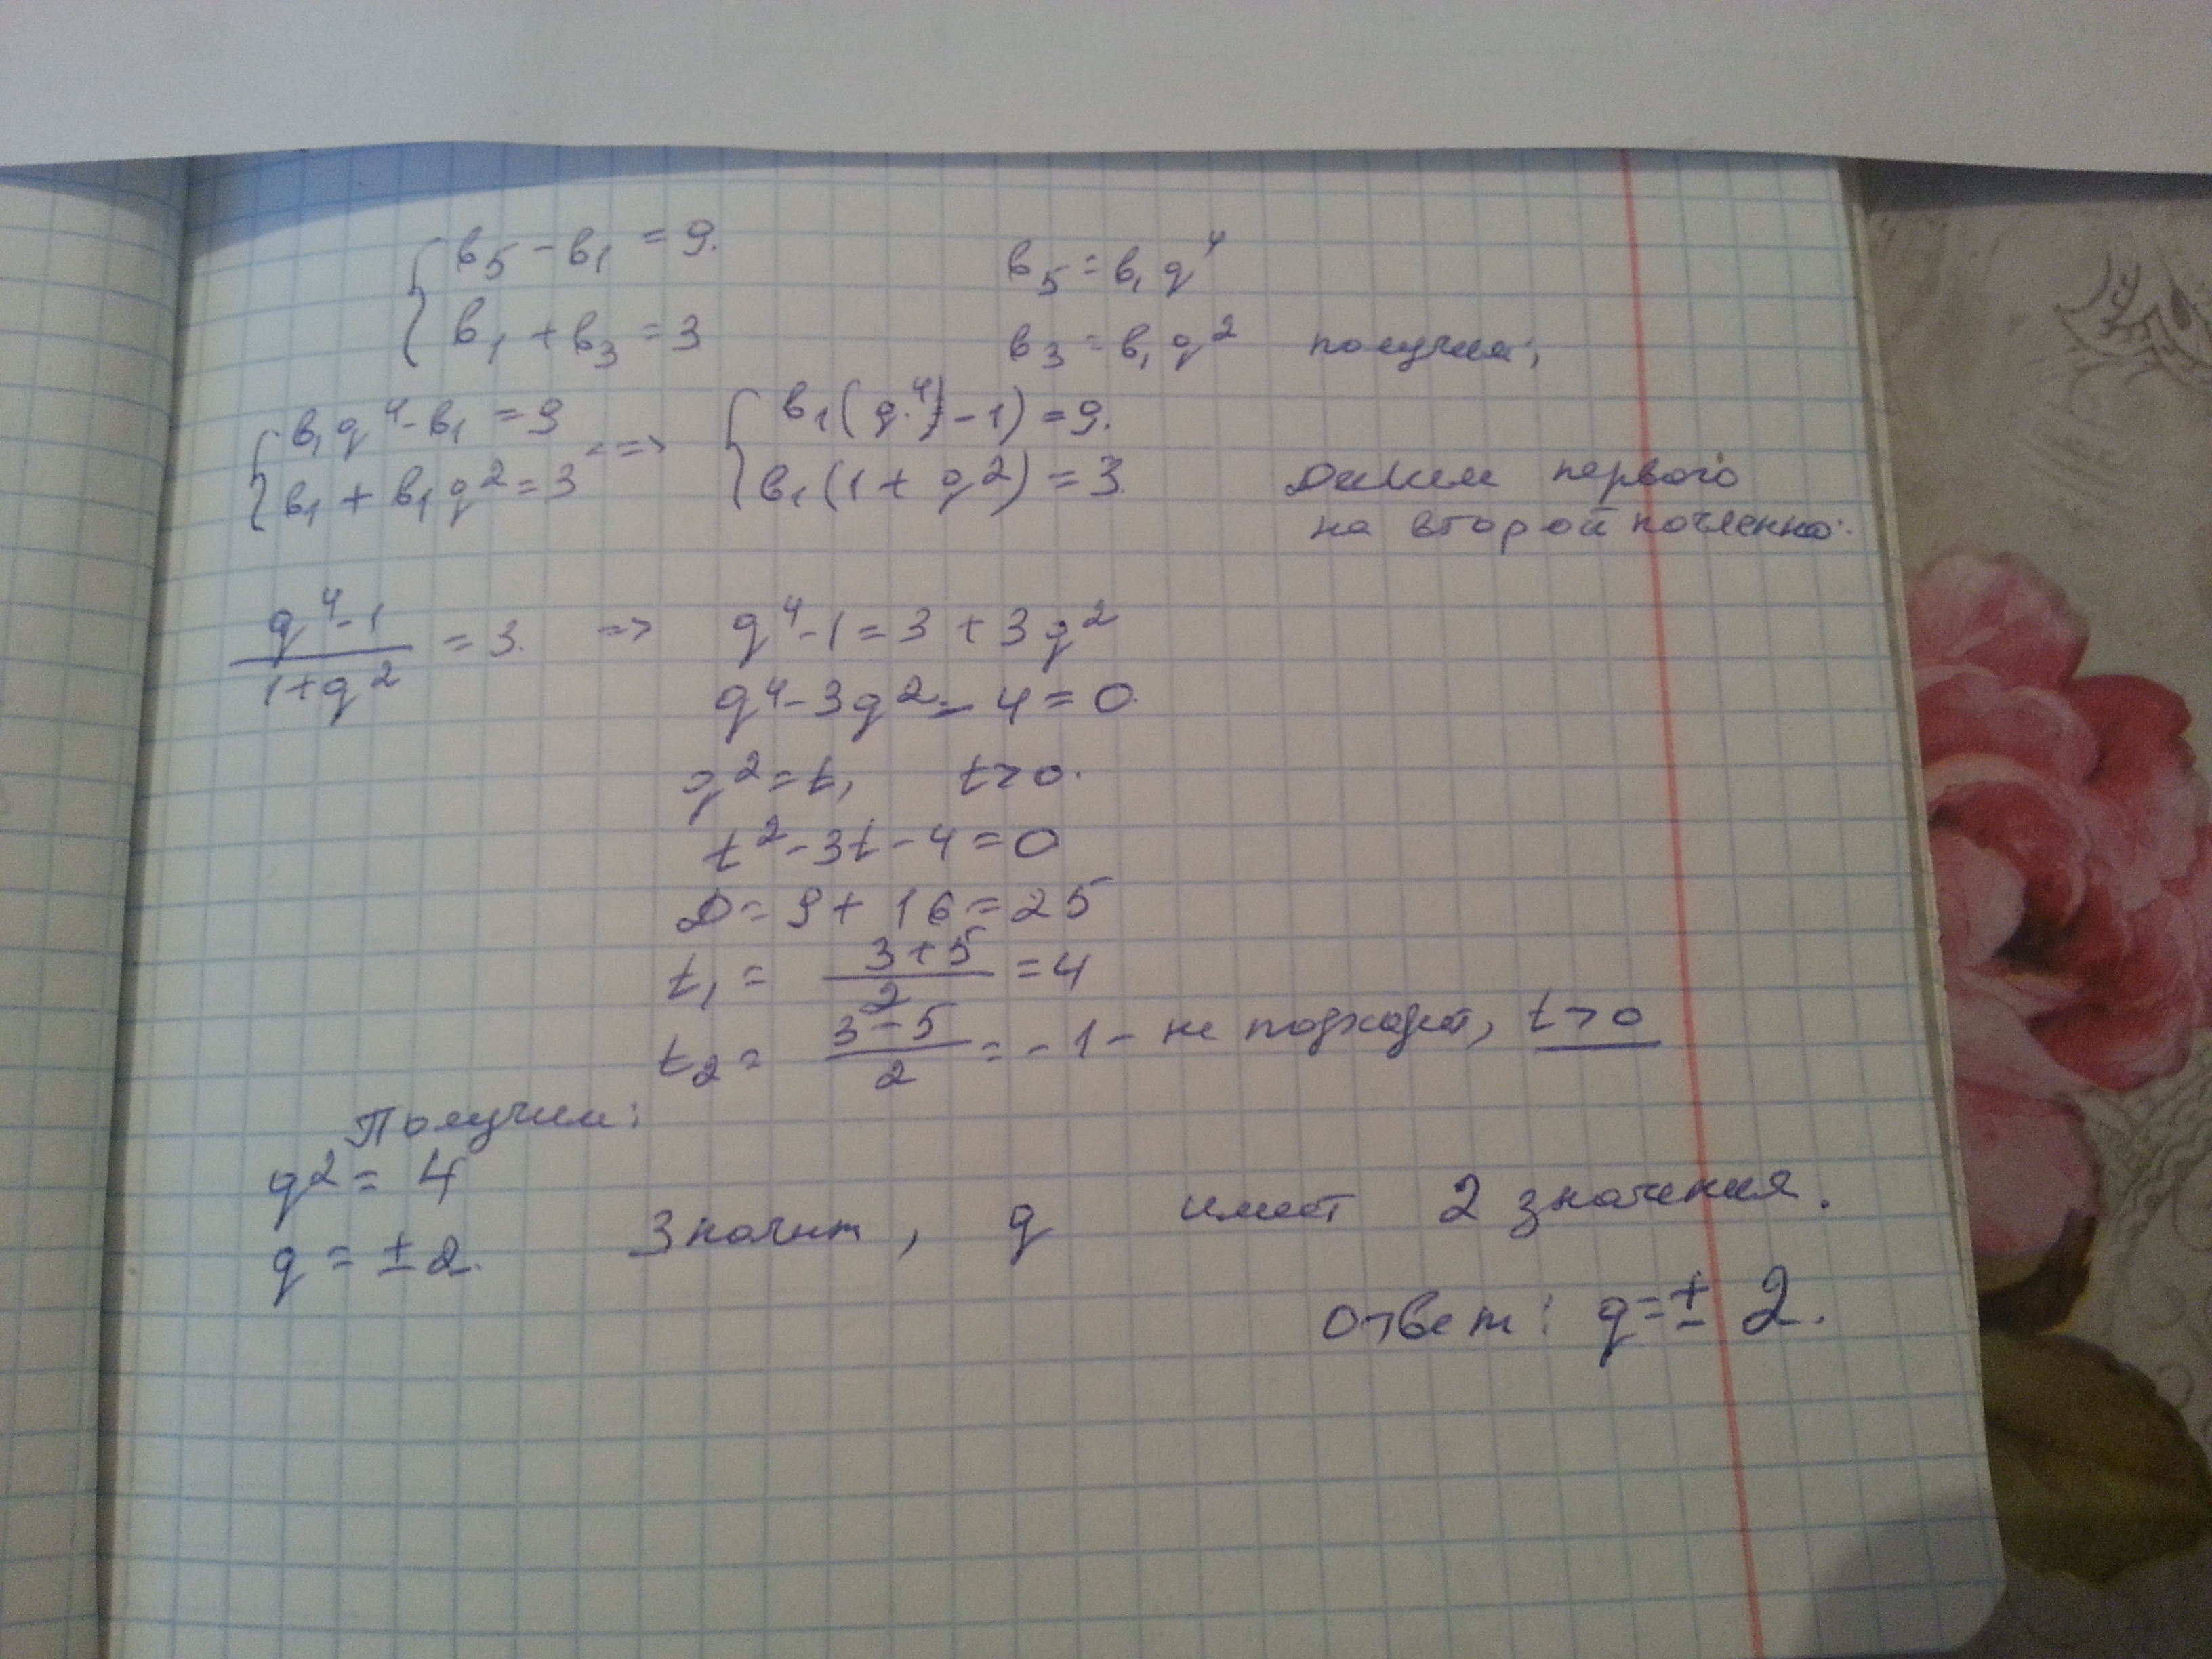 { в₅ - в₁ = 9.    в₅ = в₁ q⁴
{ в₁ + в₃ = 3    в₃ = в₁ q²    получим;
{ в₁ q⁴ - в₁ = 9 <=> { в₁ (q⁴ - 1) = 9.
{ в₁ + в₁ q² = 3    { в₁ (1 + q²) = 3    Делим первого
на второй почленно:
(q⁴-1)/(1+q²) = 3. => q⁴ - 1 = 3 + 3q²
q⁴ - 3q² - 4 = 0.
q² = t,    t > 0.
t² - 3t - 4 = 0
D = 9 + 16 = 25
t₁ = (3+5)/2 = 4
t₂ = (3-5)/2 = -1 - не подходит, t > 0
Получим:
q² = 4
q = ± 2.    Значит, q имеет 2 значения.
Ответ: q = ± 2.